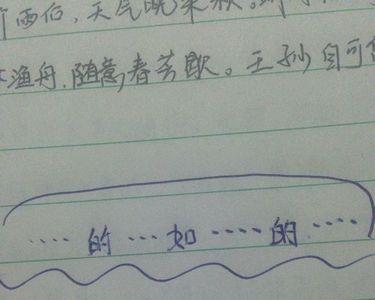 雨后,天气晚来秋。
渔舟,随意春芳歇。王孙自可
····的···如····的····